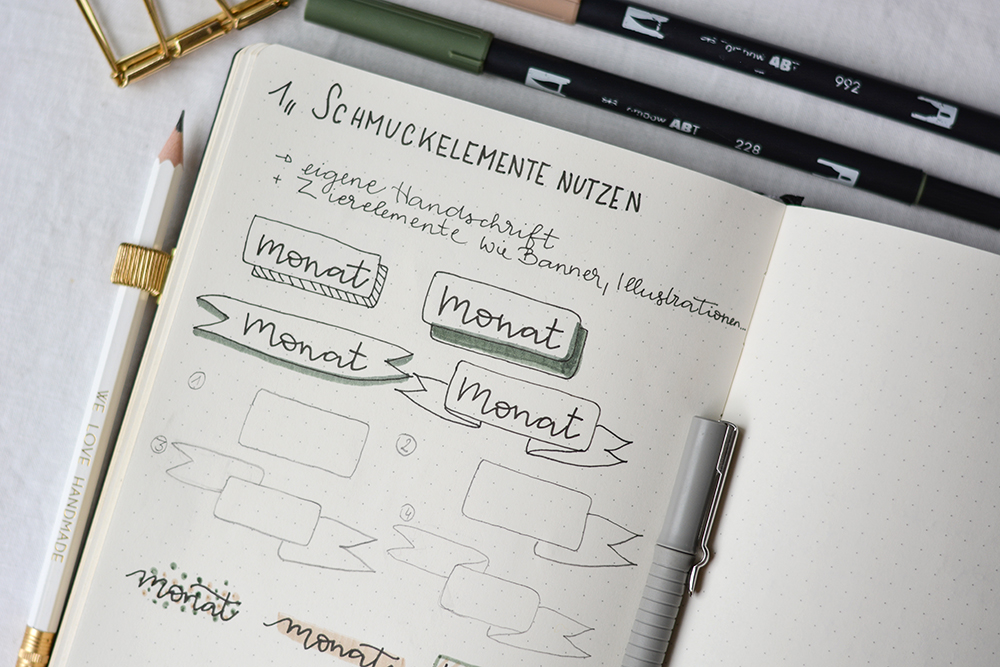 1,, SCHMUCKELEMENTE NUTZEN
→ eigene Handschrift
+ Zierelemente wie Banner, Illustrationen...
monat
monat
monat
monat
1
2
3
4
monat
monat
ABT 992
ABT 228
WE LOVE HANDMADE